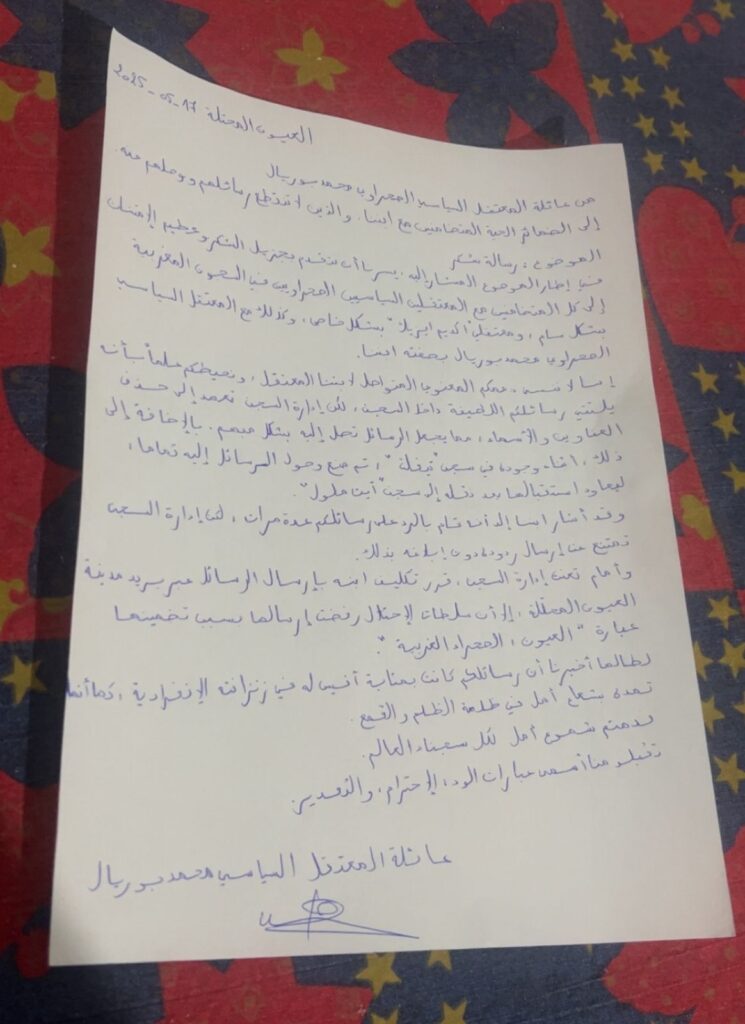 العيون المحتلة 17-05-2025
من عائلة المعتقل السياسي الصحراوي محمد بوريال
إلى الضمائر الحية المتضامنين مع ابننا، والذين لا تنقطع رسائلهم ووصلهم عنه.
الموضوع: رسالة شكر
في إطار الموضوع المشار إليه، يسرنا أن نتقدم بجزيل الشكر وعظيم الإمتنان
إلى كل المتضامنين مع المعتقلين السياسيين الصحراويين في السجون المغربية
بشكل عام، ومعتقلي "اكديم ايزيك" بشكل خاص، وكذلك مع المعتقل السياسي
الصحراوي محمد بوريال بصفته ابننا.
إننا لا ننسى دعمكم المعنوي المتواصل لابننا المعتقل، ونحيطكم علما بأنه
يتلقى رسائلكم اللطيفة داخل السجن، لكن إدارة السجن تعمد إلى حذف
العناوين والأسماء، مما يجعل الرسائل تصل إليه بشكل مبهم. بالإضافة إلى
ذلك، أثناء وجوده في سجن "تيفلت"، تم منع وصول الرسائل إليه تماما،
ليعاود استقبالها بعد نقله إلى سجن "أيت ملول".
وقد أشار ابننا إلى أنه قام بالرد على رسائلكم عدة مرات، لكن إدارة السجن
تمتنع عن إرسال ردوده دون إبلاغه بذلك.
وأمام تعنت إدارة السجن، قرر تكليف ابنه بإرسال الرسائل عبر بريد مدينة
العيون المحتلة، إلا أن سلطات الإحتلال رفضت إرسالها بسبب تضمينها
عبارة "العيون، الصحراء الغربية".
لطالما أخبرنا أن رسائلكم كانت بمثابة أنيس له في زنزانته الإنفرادية، كما أنها
تمده بشعاع أمل في ظلمة الظلم والقمع.
دمتم شموع أمل لكل سجناء العالم.
تقبلو منا أسمى عبارات الود، الإحترام، والتقدير.
عائلة المعتقل السياسي محمد بوريال